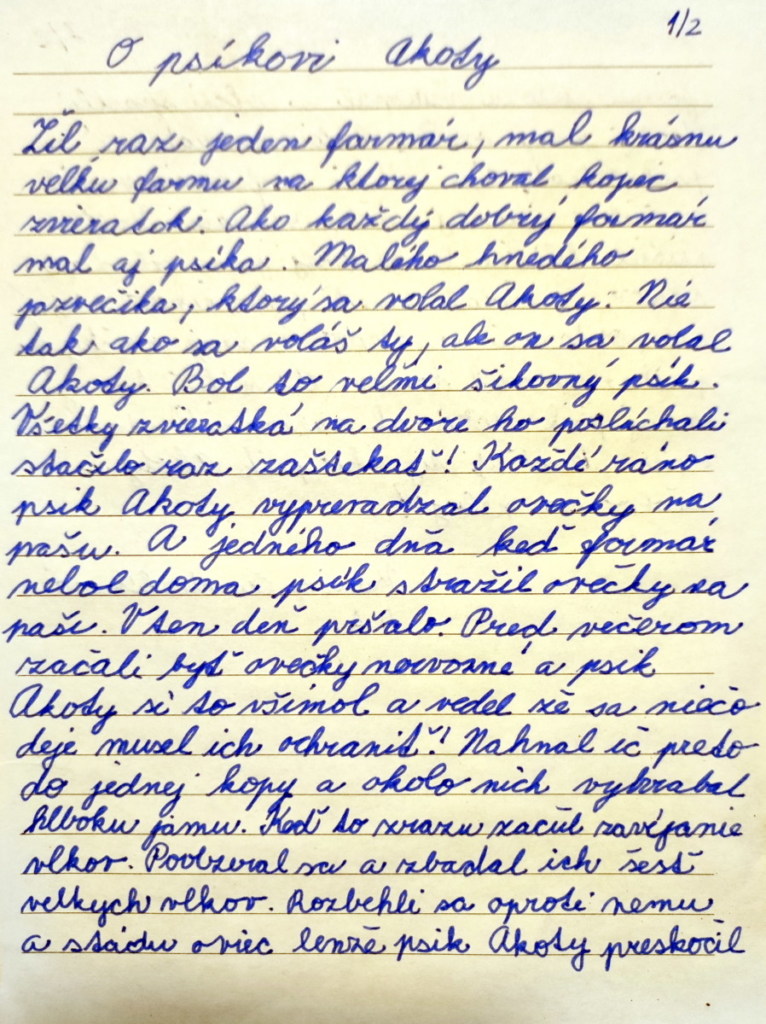 1/2
O psíkovi Akoty
Žil raz jeden farmár, mal krásnu
velkú farmu na ktorej choval kopec
zvieratok. Ako každý dobrý farmár
mal aj psíka. Malého hnedého
jazvečíka, ktorý sa volal Akoty. Nie
tak ako sa voláš ty, ale on sa volal
Akoty. Bol to velmi šikovný psík.
Všetky zvieratká na dvore ho poslúchali
stačilo raz zaštekať! Každé ráno
psik Akoty vyprevadzal ovečky na
pašu. A jedného dňa keď farmár
nebol doma psík stražil ovečky na
paši. V ten deň pršalo. Pred večerom
začali byť ovečky nervozné a psik
Akoty si to všimol a vedel že sa niečo
deje musel ich ochraniť! Nahnal ič preto
do jednej kopy a okolo nich vyhrabal
hlboku jamu. Keď to zrazu začul zavíjanie
vlkov. Poobzeral sa a zbadal ich šesť
velkych vlkov. Rozbehli sa oproti nemu
a stádu oviec lenže psik Akoty preskočil